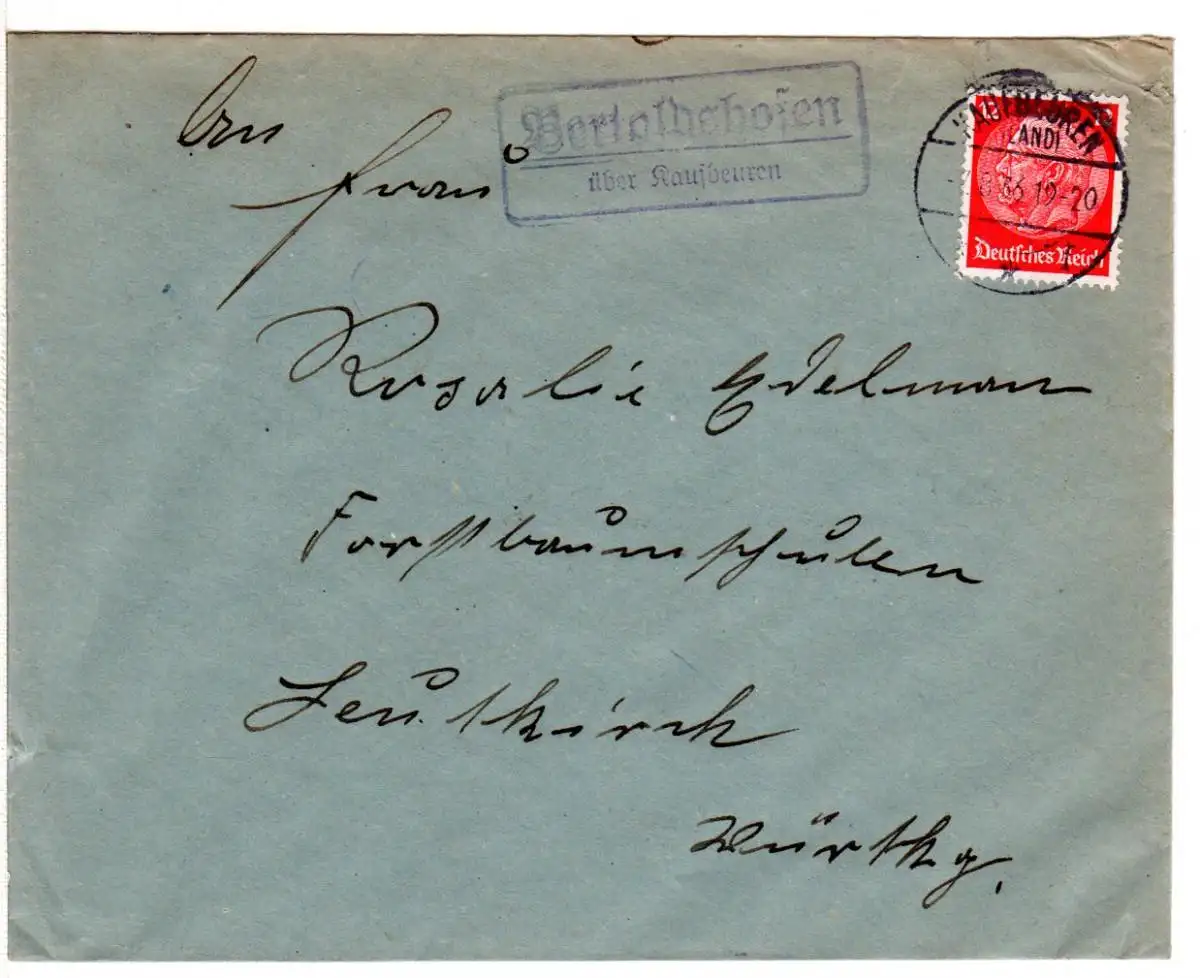 Bertoldshofen
über Kaufbeuren
KAUFBEUREN
(LAND)
36.19-20
12
Deutsches Reich
An
Frau
Rosalie Edelman
Forstbaumschulen
Leutkirch
Württbg.